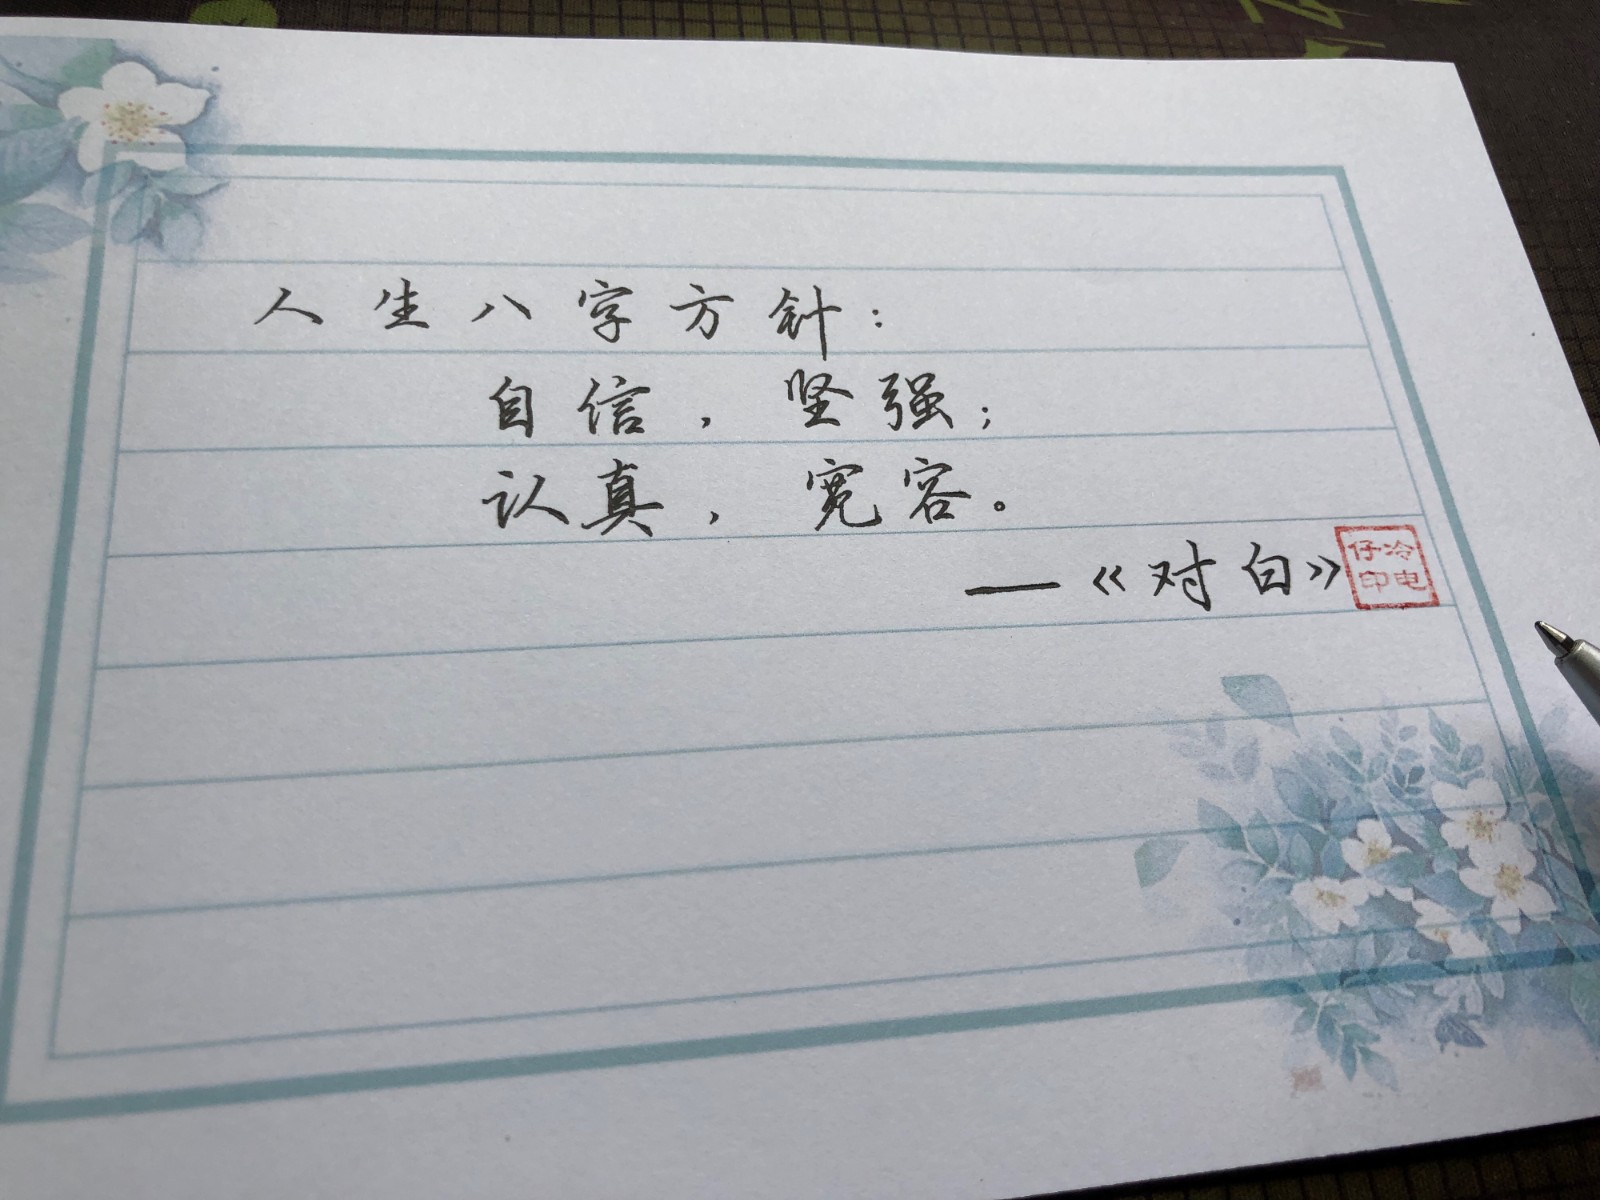 人生八字方针：
自信，坚强；
认真，宽容。
——《对白》
冷电
仔印